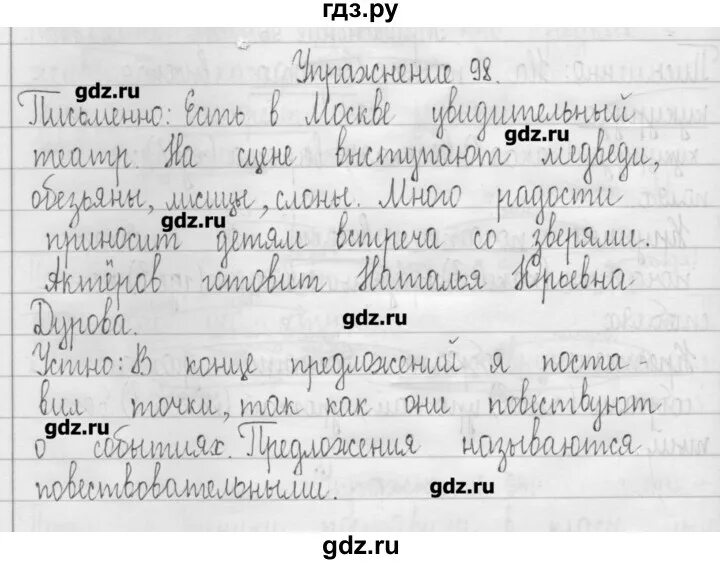 гдз.ру
Упражнение 98.
gdz.ru
Письменно: Есть в Москве увидительный
gdz.ru
театр. На сцене выступают медведи,
обезьяны, лисицы, слоны. Много радости
gdz.ru
приносит детям встреча со зверями.
Актёров готовит Наталья Юрьевна
Дурова.
gdz.ru
Устно: В конце предложений я поста-
вил точки, так как они повествуют
gdz.ru
о событиях. Предложения называются
повествовательными.
gdz.ru
gdz.ru